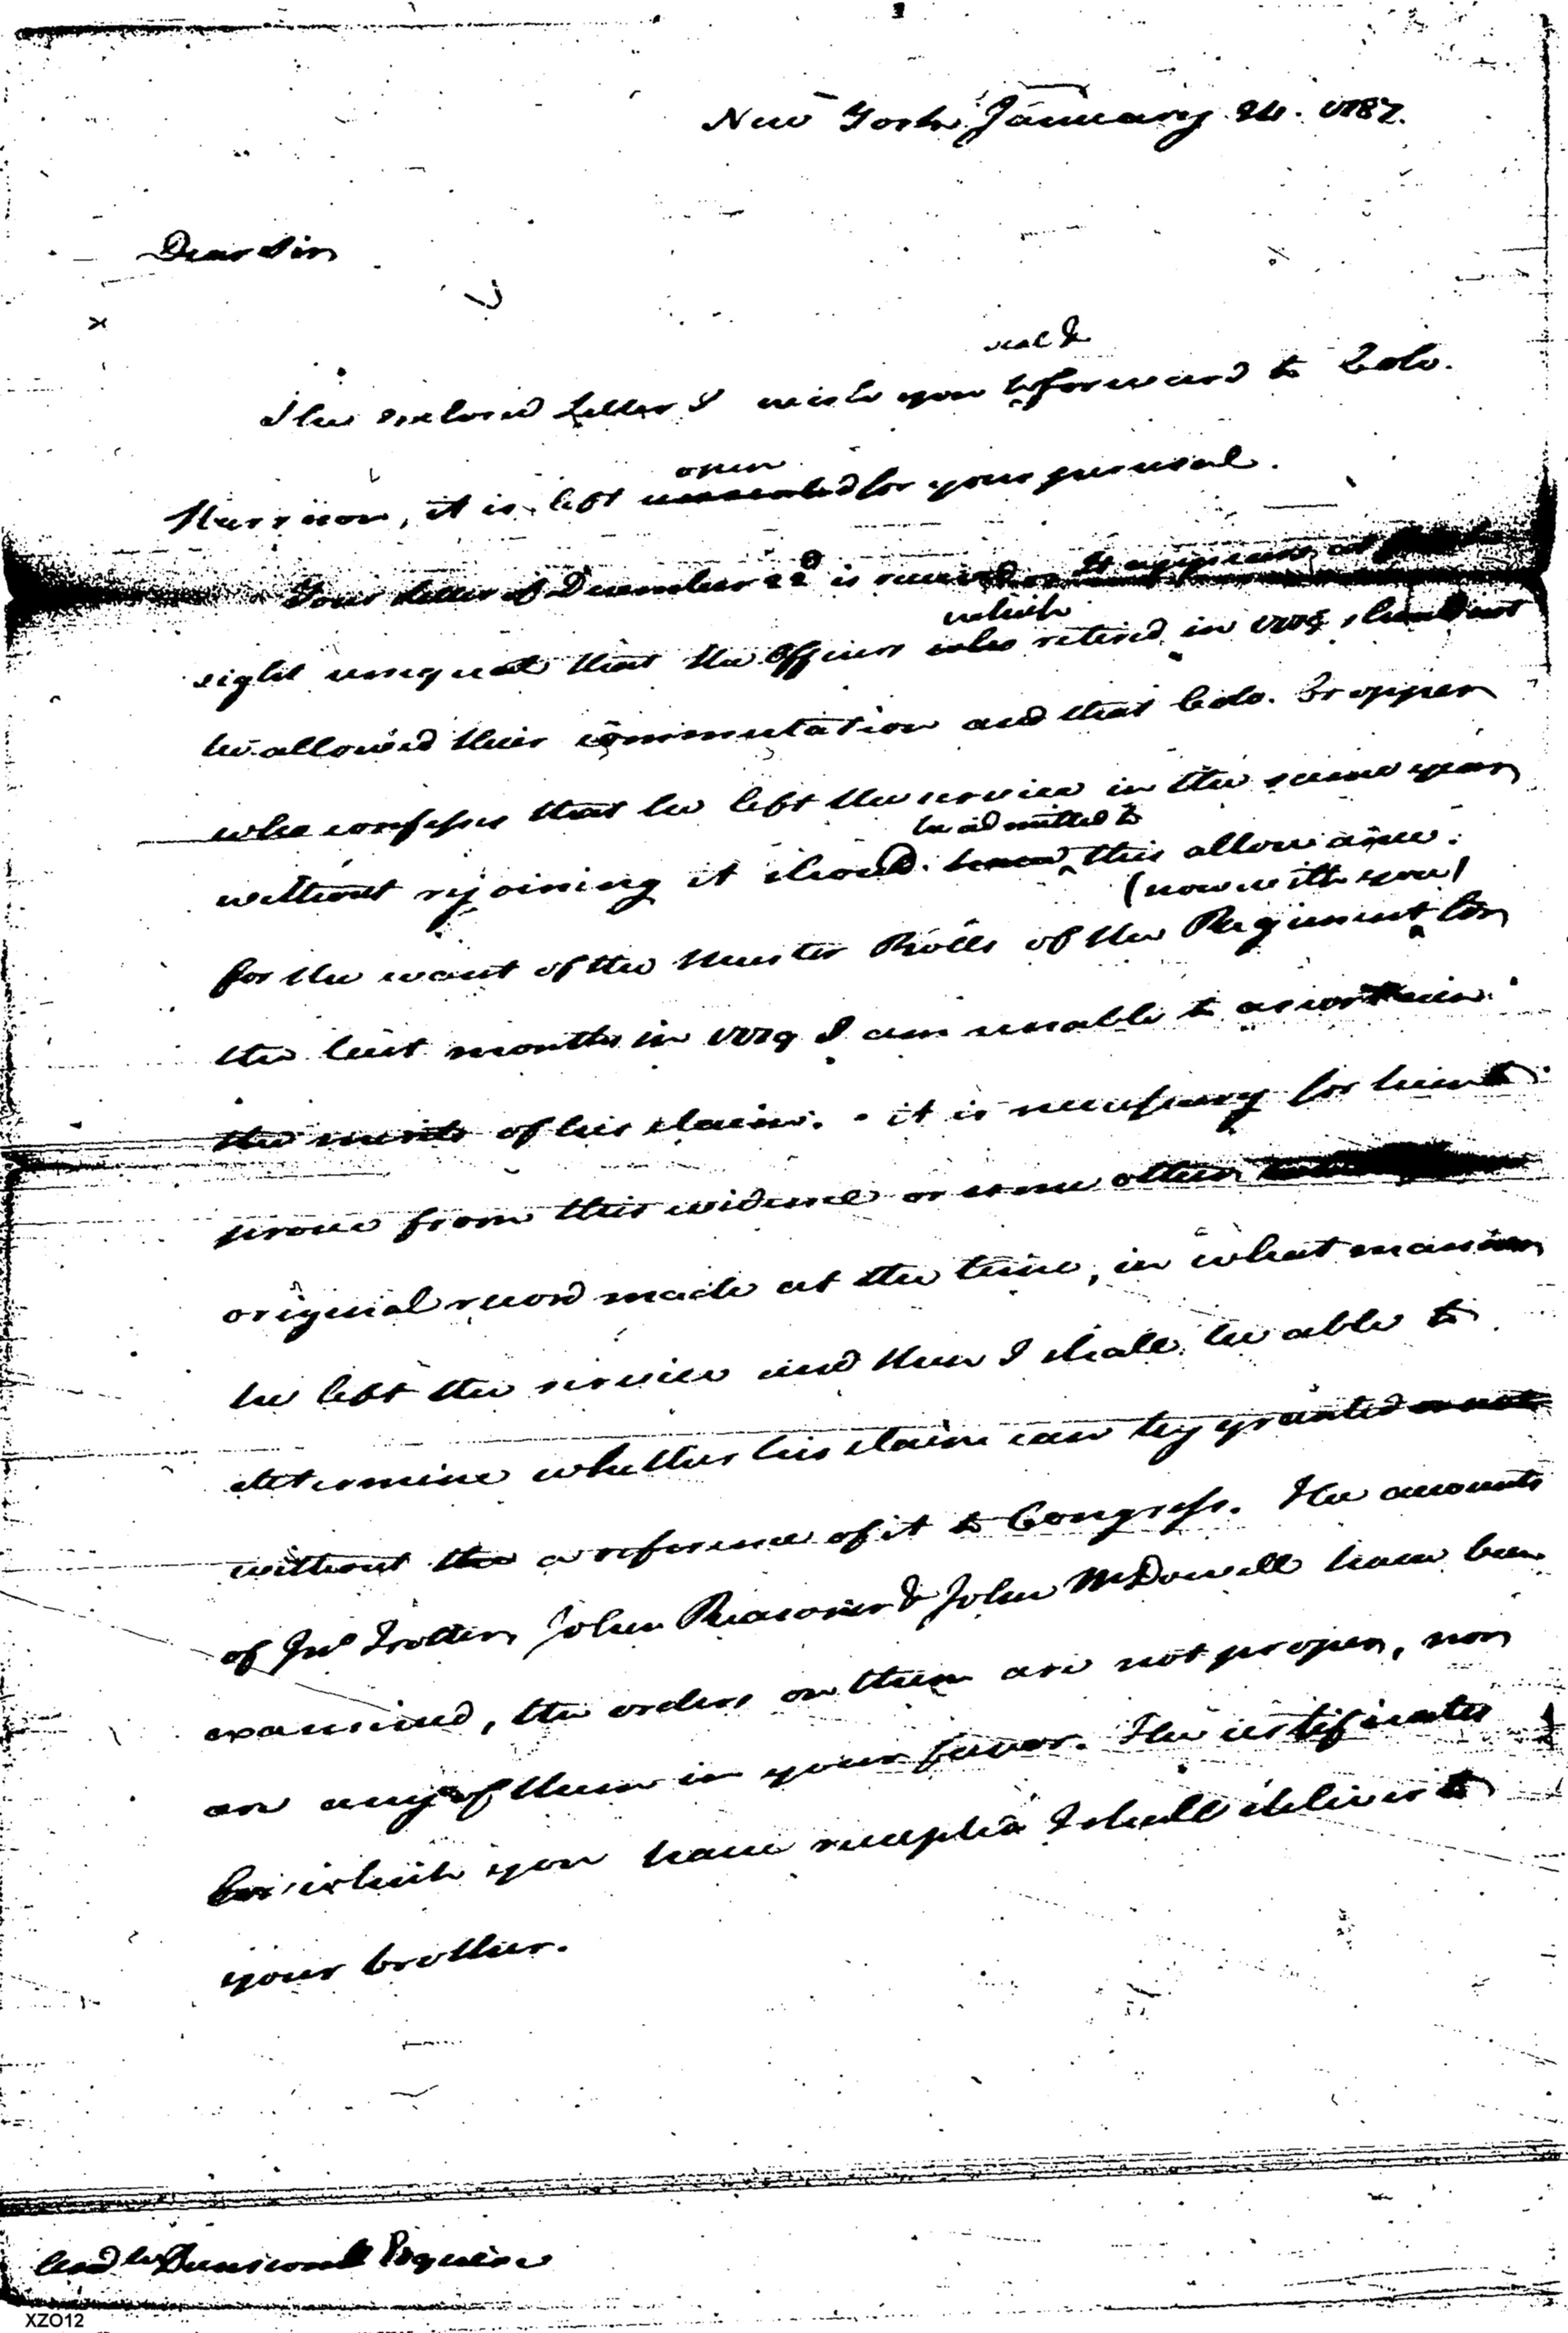 New York January 24. 1787.
Dear Sir
seal &
The enclosed Letter I wish you to forward to Colo.
open
Harrison, it is left unsealed for your perusal.
Your Letter of December 22d is received. It appears at
which
sight unequal that the Officers who retired in 1778 should not
be allowed their commutation and that Colo. Cropper
who confesses that he left the service in the same year
be admitted to
without rejoining it should have this allowance.
(now with you)
for the want of the Muster Rolls of the Regiment for
the last months in 1779 I am unable to ascertain
the merits of his claim. - it is necessary for him to
prove from this evidence or some other
original record made at the time, in what manner
he left the service and then I shall be able to
determine whether his claim can be granted or not
without the a reference of it to Congress. The accounts
of Jno Trotter, John Reasoner & John McDowell have been
examined, the orders on them are not proper, nor
are any of them in your favor. The certificates
for which you have receipted I shall deliver to
your brother.
Andw Dunscomb Esquire
XZO12